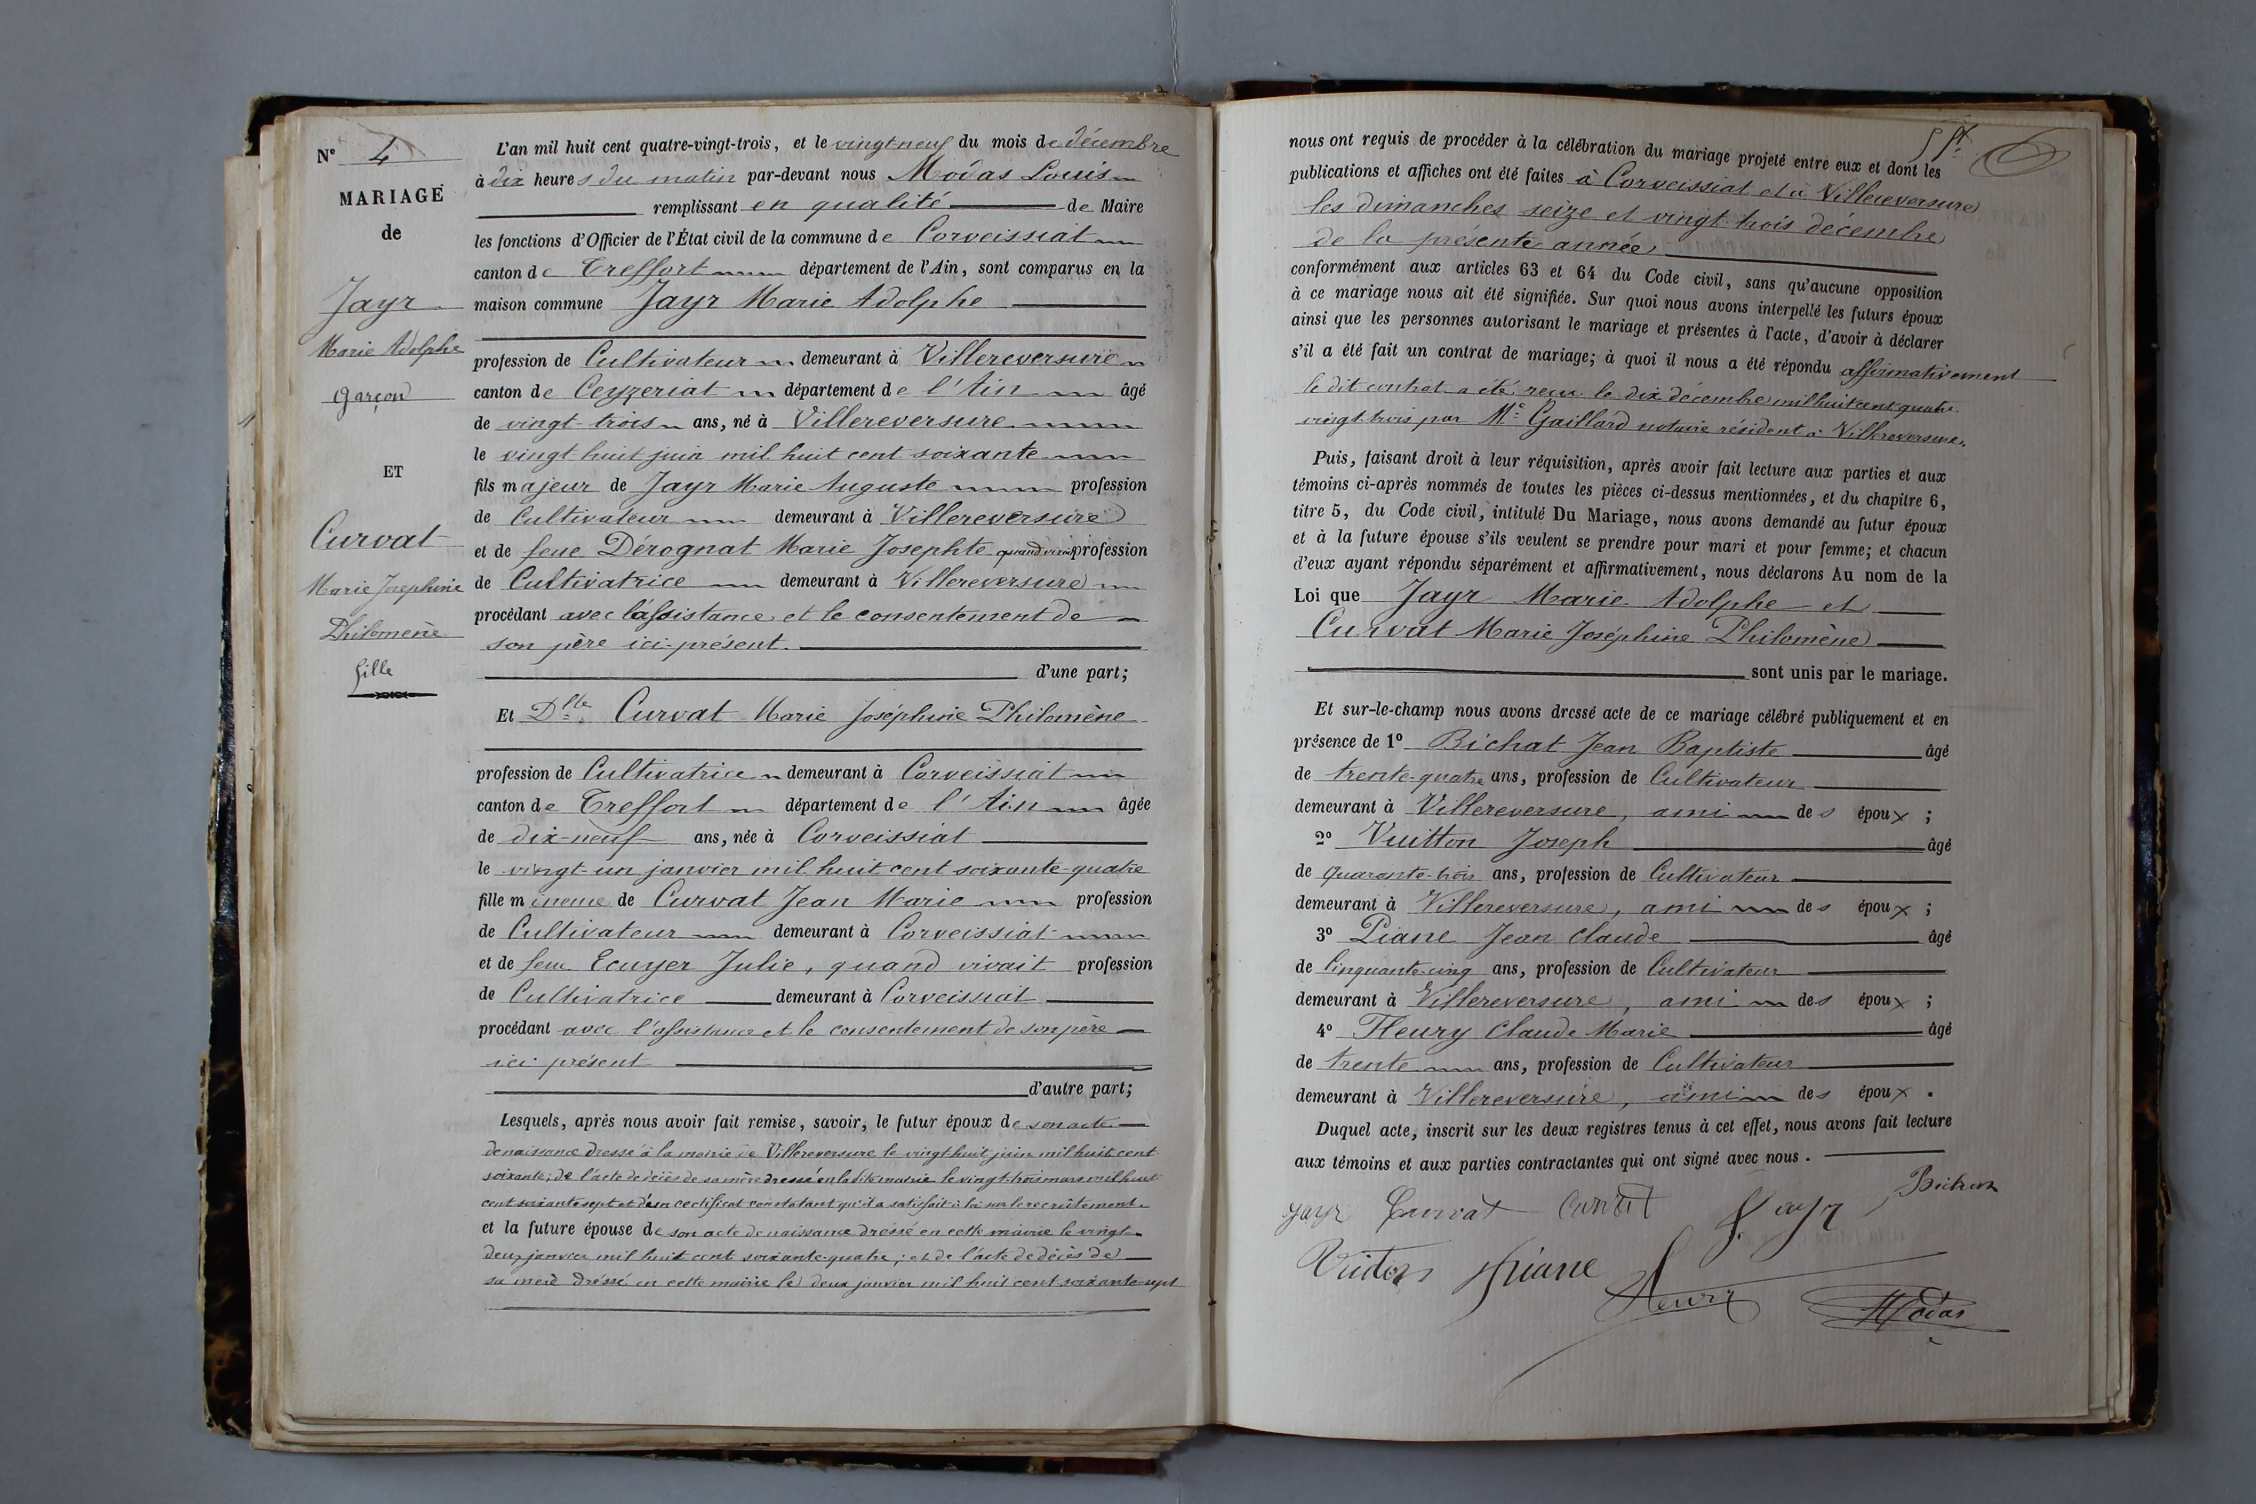 N° 4
MARIAGE
de
Jayr
Marie Adolphe
garçon
ET
Curvat
Marie Josephine
Philomène
fille
L'an mil huit cent quatre-vingt-trois, et le vingt neuf du mois de décembre
à dix heures du matin par-devant nous Modas Louis
remplissant en qualité de Maire
les fonctions d'Officier de l'État civil de la commune de Corveissiat
canton de Treffort département de l'Ain, sont comparus en la
maison commune Jayr Marie Adolphe
profession de Cultivateur demeurant à Villereversure
canton de Ceyzeriat département de l'Ain âgé
de vingt-trois ans, né à Villereversure
le vingt huit juin mil huit cent soixante
fils majeur de Jayr Marie Auguste profession
de Cultivateur demeurant à Villereversure
et de feue Dérognat Marie Josephte quand vivait profession
de Cultivatrice demeurant à Villereversure
procédant avec l'assistance et le consentement de
son père ici présent.
d'une part;
Et Dlle Curvat Marie Joséphine Philomène
profession de Cultivatrice demeurant à Corveissiat
canton de Treffort département de l'Ain âgée
de dix-neuf ans, née à Corveissiat
le vingt-un janvier mil huit cent soixante-quatre
fille mineure de Curvat Jean Marie profession
de Cultivateur demeurant à Corveissiat
et de feue Ecuyer Julie, quand vivait profession
de Cultivatrice demeurant à Corveissiat
procédant avec l'assistance et le consentement de son père
ici présent
d'autre part;
Lesquels, après nous avoir fait remise, savoir, le futur époux de son acte
de naissance dressé à la mairie de Villereversure le vingt huit juin mil huit cent
soixante; de l'acte de décès de sa mère dressé en la dite mairie le vingt-trois mars mil huit
cent soixante sept et d'un certificat constatant qu'il a satisfait à la loi sur le recrutement.
et la future épouse de son acte de naissance dressé en cette mairie le vingt-
deux janvier mil huit cent soixante-quatre; et de l'acte de décès de
sa mère dressé en cette mairie le deux janvier mil huit cent soixante-sept
nous ont requis de procéder à la célébration du mariage projeté entre eux et dont les
publications et affiches ont été faites à Corveissiat et à Villereversure
les dimanches seize et vingt-trois décembre
de la présente année
conformément aux articles 63 et 64 du Code civil, sans qu'aucune opposition
à ce mariage nous ait été signifiée. Sur quoi nous avons interpellé les futurs époux
ainsi que les personnes autorisant le mariage et présentes à l'acte, d'avoir à déclarer
s'il a été fait un contrat de mariage; à quoi il nous a été répondu affirmativement
le dit contrat a été reçu le dix décembre mil huit cent quatre-
vingt-trois par Me Gaillard notaire résident à Villereversure.
Puis, faisant droit à leur réquisition, après avoir fait lecture aux parties et aux
témoins ci-après nommés de toutes les pièces ci-dessus mentionnées, et du chapitre 6,
titre 5, du Code civil, intitulé Du Mariage, nous avons demandé au futur époux
et à la future épouse s'ils veulent se prendre pour mari et pour femme; et chacun
d'eux ayant répondu séparément et affirmativement, nous déclarons Au nom de la
Loi que Jayr Marie Adolphe et
Curvat Marie Joséphine Philomène
sont unis par le mariage.
Et sur-le-champ nous avons dressé acte de ce mariage célébré publiquement et en
présence de 1° Bichat Jean Baptiste âgé
de trente-quatre ans, profession de Cultivateur
demeurant à Villereversure, ami des époux;
2° Vuitton Joseph âgé
de quarante-trois ans, profession de Cultivateur
demeurant à Villereversure, ami des époux;
3° Piane Jean Claude âgé
de Cinquante-cinq ans, profession de Cultivateur
demeurant à Villereversure, ami des époux;
4° Fleury Claude Marie âgé
de trente ans, profession de Cultivateur
demeurant à Villereversure, ami des époux.
Duquel acte, inscrit sur les deux registres tenus à cet effet, nous avons fait lecture
aux témoins et aux parties contractantes qui ont signé avec nous.
Jayr Curvat Curvat Jayr
Piane
Fleury Modas